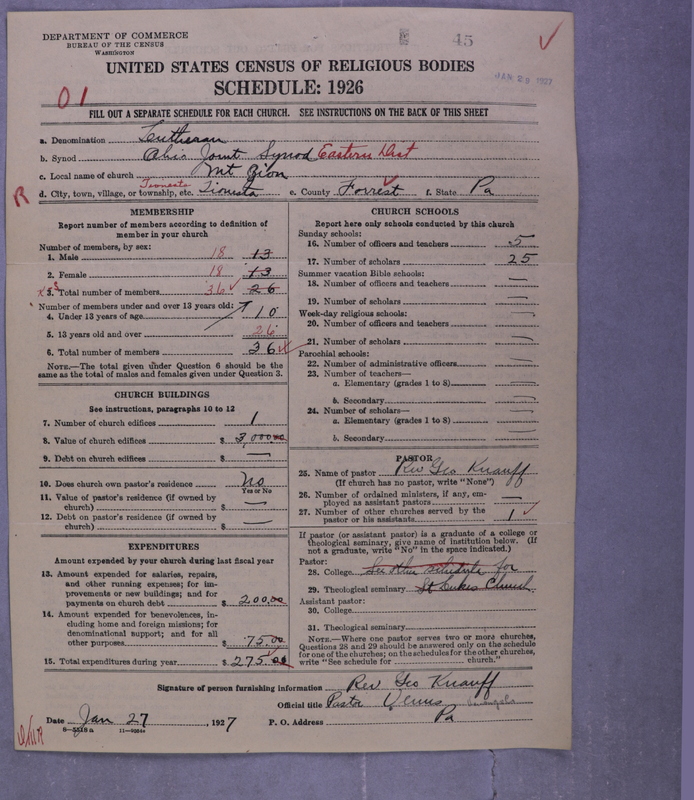 DEPARTMENT OF COMMERCE
BUREAU OF THE CENSUS
WASHINGTON
45
JAN 29 1927
UNITED STATES CENSUS OF RELIGIOUS BODIES
SCHEDULE: 1926
01
FILL OUT A SEPARATE SCHEDULE FOR EACH CHURCH. SEE INSTRUCTIONS ON THE BACK OF THIS SHEET
a. Denomination Lutheran
b. Synod Ohio Joint Synod Eastern Dist
c. Local name of church Mt Zion
Tionesta
R d. City, town, village, or township, etc. Tionista e. County Forrest f. State Pa
MEMBERSHIP
Report number of members according to definition of
member in your church
Number of members, by sex:
1. Male 18 13
2. Female 18 13
3. Total number of members 36 26
Number of members under and over 13 years old:
4. Under 13 years of age 10
5. 13 years old and over 26
6. Total number of members 36
NOTE.—The total given under Question 6 should be the
same as the total of males and females given under Question 3.
CHURCH BUILDINGS
See instructions, paragraphs 10 to 12
7. Number of church edifices 1
8. Value of church edifices $ 3,000.00
9. Debt on church edifices $ —
10. Does church own pastor's residence? No
Yes or No
11. Value of pastor's residence (if owned by
church) $ —
12. Debt on pastor's residence (if owned by
church) $ —
EXPENDITURES
Amount expended by your church during last fiscal year
13. Amount expended for salaries, repairs,
and other running expenses; for im-
provements or new buildings; and for
payments on church debt $ 200.00
14. Amount expended for benevolences, in-
cluding home and foreign missions; for
denominational support; and for all
other purposes $ 75.00
15. Total expenditures during year $ 275.00
CHURCH SCHOOLS
Report here only schools conducted by this church
Sunday schools:
16. Number of officers and teachers 5
17. Number of scholars 25
Summer vacation Bible schools:
18. Number of officers and teachers —
19. Number of scholars —
Week-day religious schools:
20. Number of officers and teachers —
21. Number of scholars —
Parochial schools:
22. Number of administrative officers —
23. Number of teachers—
a. Elementary (grades 1 to 8) —
b. Secondary —
24. Number of scholars—
a. Elementary (grades 1 to 8) —
b. Secondary —
PASTOR
25. Name of pastor Rev Geo Knauff
(If church has no pastor, write "None")
26. Number of ordained ministers, if any, em-
ployed as assistant pastors —
27. Number of other churches served by the
pastor or his assistants 1
If pastor (or assistant pastor) is a graduate of a college or
theological seminary, give name of institution below. (If
not a graduate, write "No" in the space indicated.)
Pastor:
28. College See other schedule for
29. Theological seminary St Lukes Church
Assistant pastor:
30. College
31. Theological seminary
NOTE.—Where one pastor serves two or more churches,
Questions 28 and 29 should be answered only on the schedule
for one of the churches; on the schedules for the other churches,
write "See schedule for church."
Signature of person furnishing information Rev Geo Knauff
Official title Pastor Venus
Date Jan 27, 1927 P. O. Address Pa